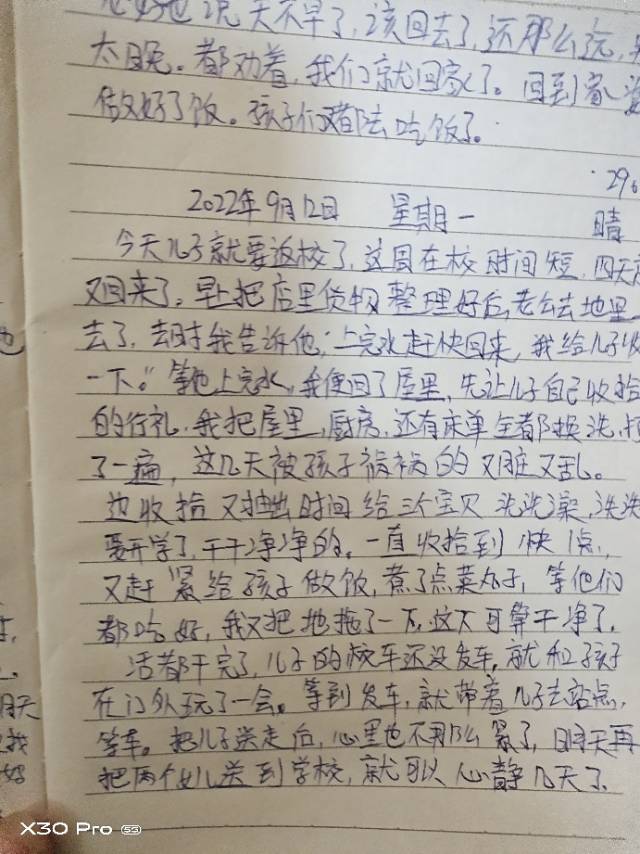 说天不早了,该回去了,还那么远,
太晚。都劝着,我们就回家了。回到家,
做好了饭。孩子们都去吃饭了。
296
2022年9月12日 星期一 晴
今天儿子就要返校了,这周在校时间短,四天
又回来了。早上把店里货物整理好后,老公去地里
去了,去时我告诉他,“上完水赶快回来,我给儿子收
一下。”等他上完水,我便回了屋里,先让儿子自己收拾
的行礼,我把屋里,厨房,还有床单全都换洗,
了一遍,这几天被孩子祸祸的又脏又乱。
边收拾又抽出时间给三个宝贝洗洗澡,洗洗
要开学了,干干净净的。一直收拾到快1点,
又赶紧给孩子做饭,煮了点菜丸子,等他们
都吃好,我又把地拖了一下,这下可算干净了。
活都干完了,儿子的校车还没发车,就和孩子
在门外玩了一会。等到发车,就带着儿子去站点,
等车。把儿子送走后,心里也不用那么紧了,明天再
把两个女儿送到学校,就可以心静几天了。
他
明天
我
好
X30 Pro 5G